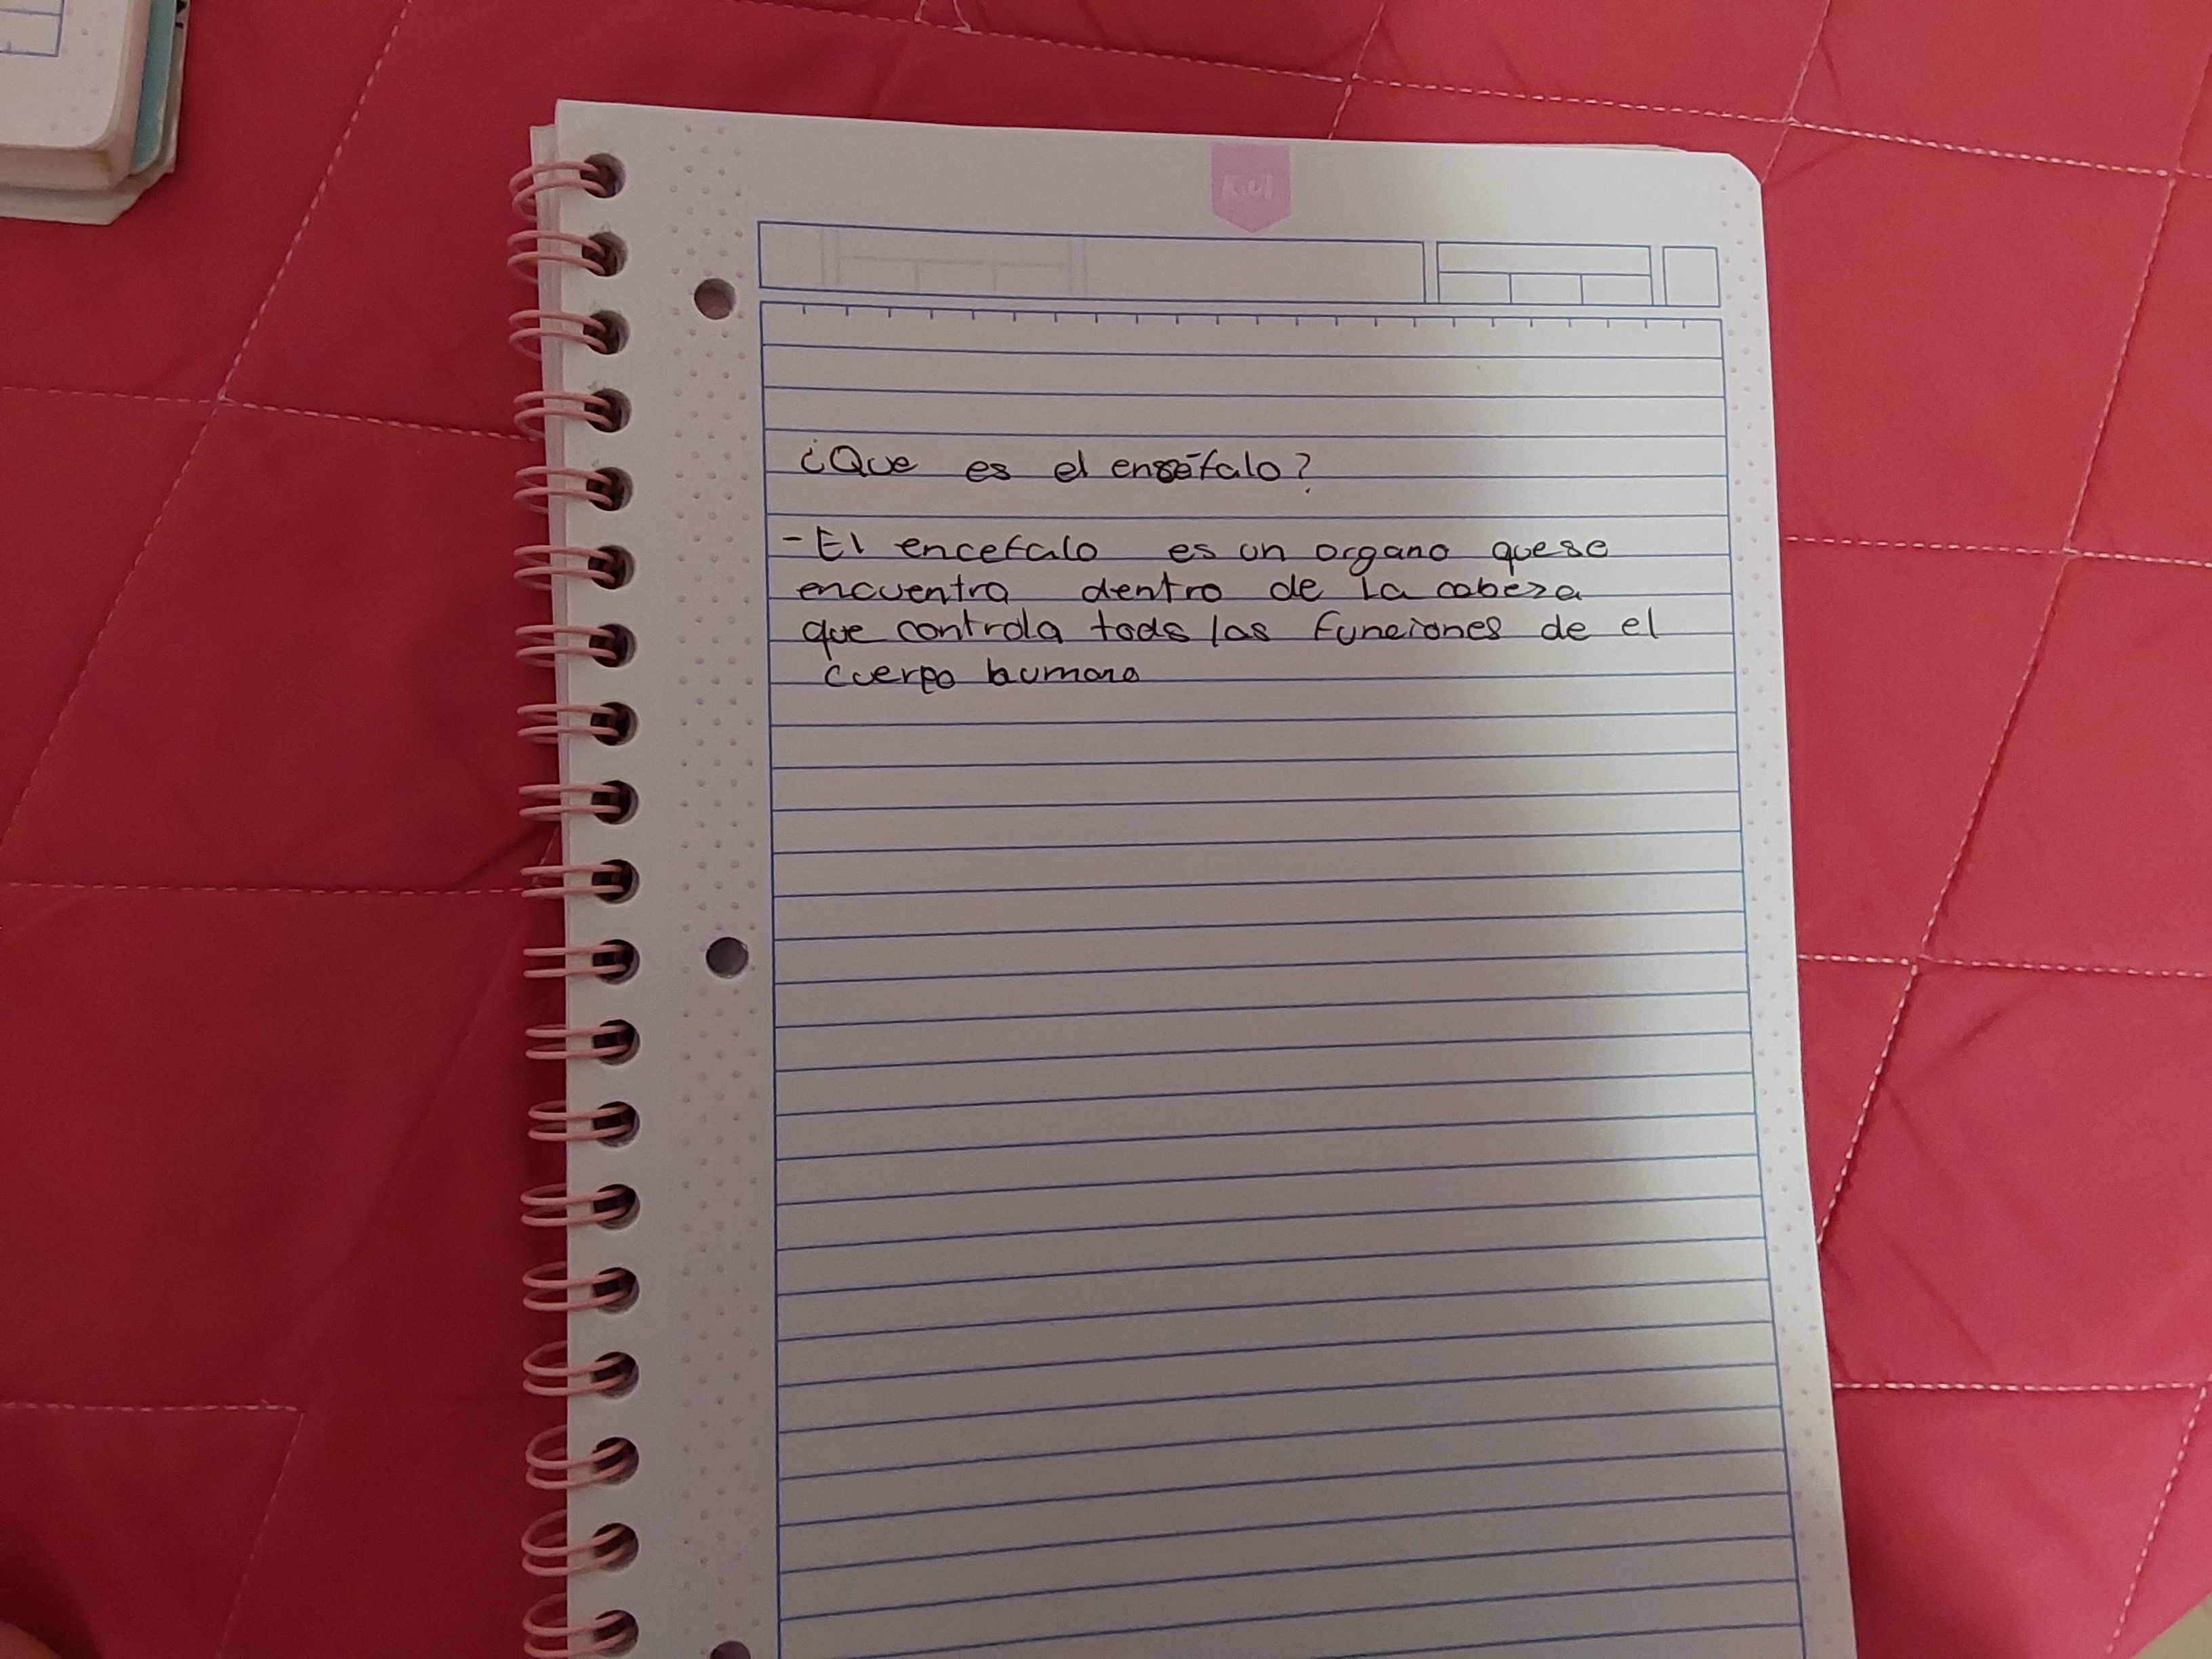 Kiut
¿Que es el enséfalo?
- El encefalo es un organo que se
encuentra dentro de la cabeza
que controla tods las funciones de el
cuerpo humano